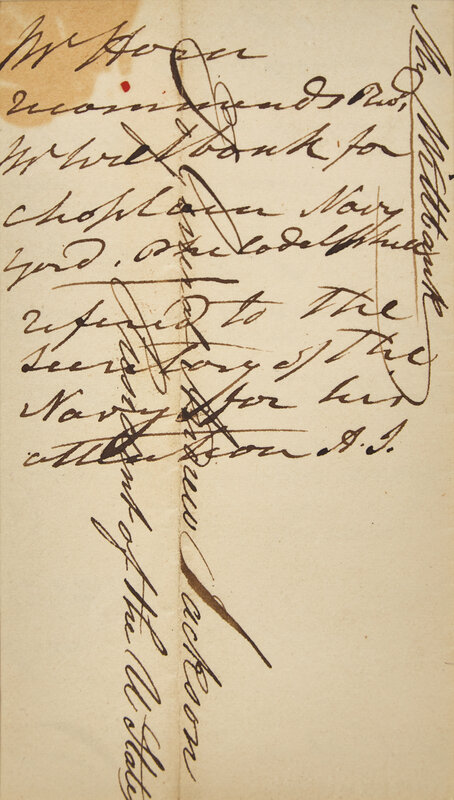 Mr Horn
recommends Revd,
Mr Wiltbank for
choplain Navy
yard, Philadelphia
refered to the
Secretary of the
Navy for his
attention A. J.
General Andrew Jackson
President of the U State
Mr Wiltbank